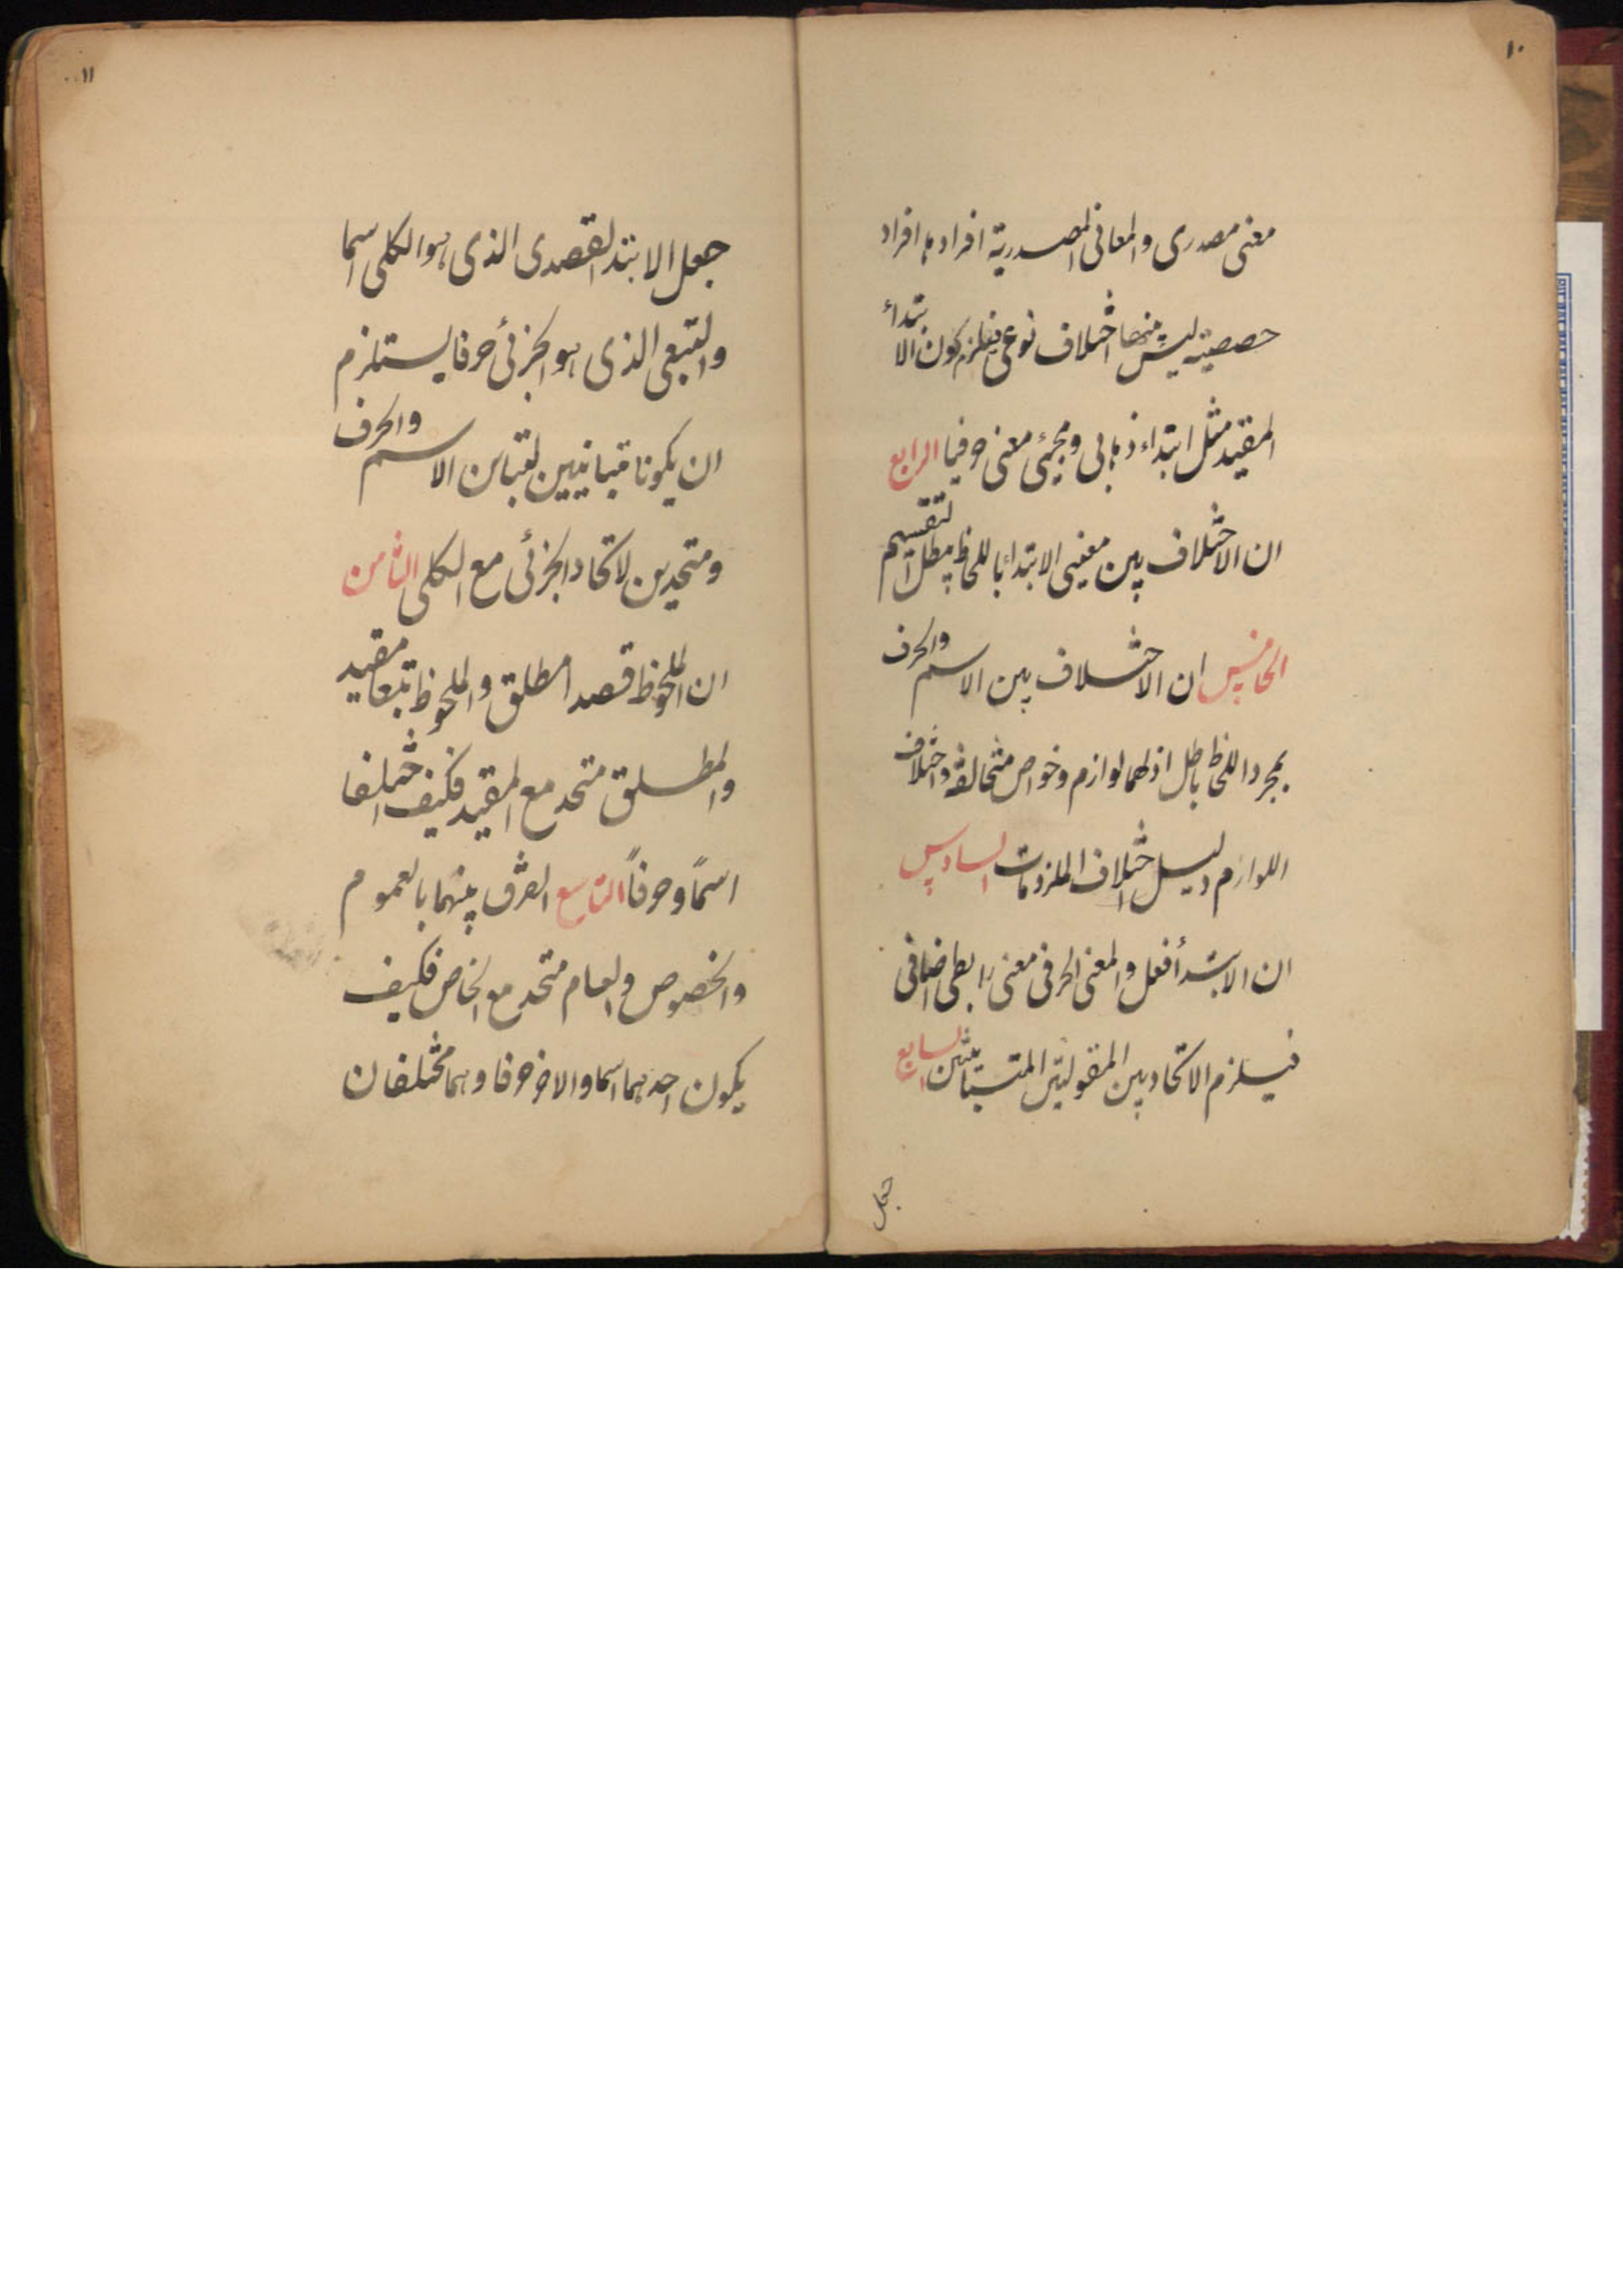 ١٠
معنى مصدرى والمعانى المصدرية افرادها افراد
حصصية ليس بينها اختلاف نوعى فيلزم كون الابتداء
المقيد مثل ابتداء ذهابى ومجيئى معنى حرفيا الرابع
ان الاختلاف بين معنيى الابتداء باللحاظ يبطل التقسيم
الخامس ان الاختلاف بين الاسم والحرف
بمجرد اللحاظ باطل اذ لهما لوازم وخواص متخالفة واختلاف
اللوازم دليل اختلاف الملزومات السادس
ان الابتدأ فعل والمعنى الحرفى معنى رابطى اضافى
فيلزم الاتحاد بين المقولتين المتباينتين السابع
جعل
١١
جعل الابتدا القصدى الذى هو الكلى اسما
والتبعى الذى هو الجزئى حرفا يستلزم
ان يكونا متباينين لتباين الاسم والحرف
ومتحدين لاتحاد الجزئى مع الكلى الثامن
ان الملحوظ قصدا مطلق والملحوظ تبعا مقيد
والمطلق متحد مع المقيد فكيف اختلفا
اسمًا وحرفاً التاسع الفرق بينهما بالعموم
والخصوص والعام متحد مع الخاص فكيف
يكون احدهما اسما والاخر حرفا وهما مختلفان